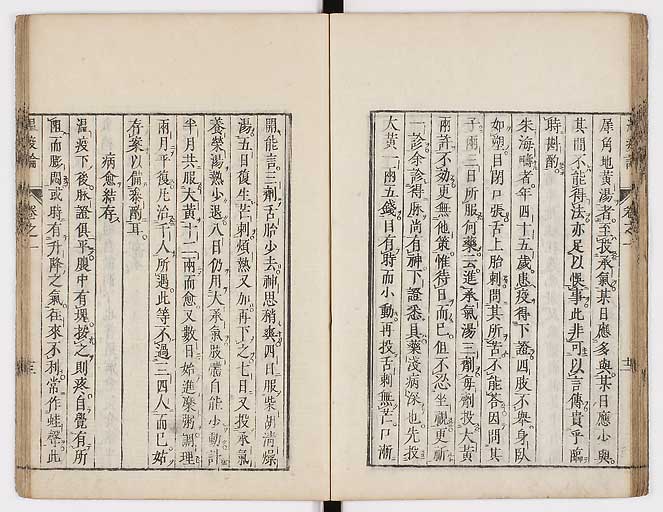 犀角地黃湯者至投承氣某日應多與某日應少與
其間不能得法亦足以悞事此非可以言傳貴乎臨
時斟酌
朱海疇者年四十五歲患疫得下證四肢不舉身臥
如塑目閉口張舌上胎刺問其所苦不能答因問其
子兩三日所服何藥云進承氣湯三劑每劑投大黃
兩許不効更無他策惟待日而已但不忍坐視更祈
一診余診得脉尚有神下證悉具藥淺病深也先投
大黃一兩五錢目有時而小動再投舌刺無芒口漸
開能言三劑舌胎少去神思稍爽四日服柴胡清燥
湯五日復生芒刺煩熱又加再下之七日又投承氣
養榮湯熱少退八日仍用大承氣肢體自能少動計
半月共服大黃十二兩而愈又數日始進糜粥調理
兩月平復凡治千人所遇此等不過三四人而已姑
存案以備參酌耳
病愈結存
溫疫下後脉證俱平腹中有塊按之則疼自覺有所
阻而膨悶或時有升降之氣往來不利常作蛙聲此
溫疫論
卷之一